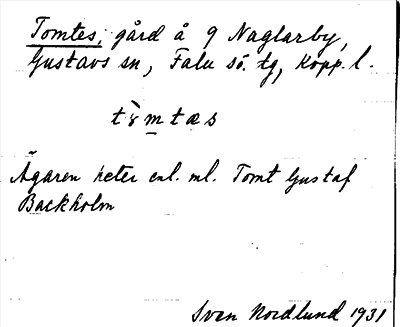 Tomtes, gård å 9 Naglarby,
Gustavs sn, Falu sö. tg, Kopp. l.
Ägaren heter enl. ml. Tomt Gustaf
Backholm
Sven Nordlund 1931